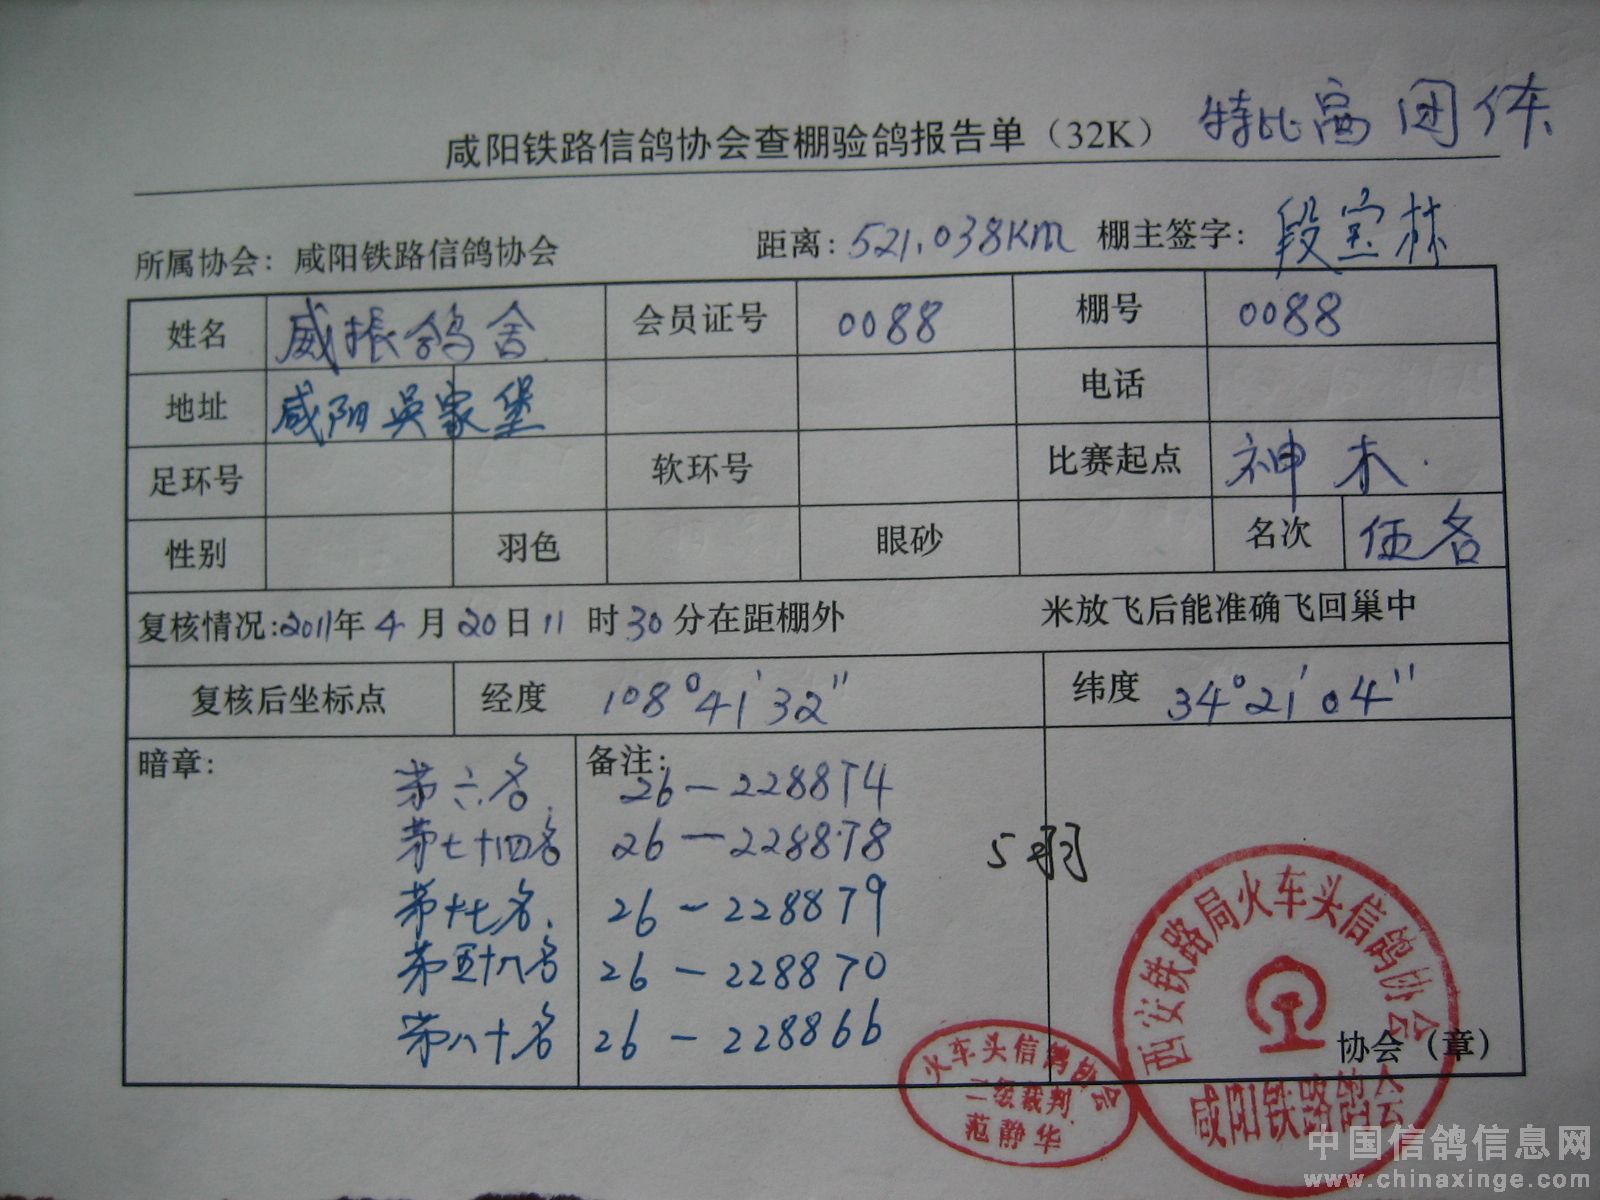 特比高团体
咸阳铁路信鸽协会查棚验鸽报告单（32K）
所属协会：咸阳铁路信鸽协会 距离：521.038KM 棚主签字：段宝林
姓名 威振鸽舍 会员证号 0088 棚号 0088
地址 咸阳吴家堡 电话
足环号 软环号 比赛起点 神木
性别 羽色 眼砂 名次 伍名
复核情况:2011年4月20日11时30分在距棚外 米放飞后能准确飞回巢中
复核后坐标点 经度 108°41'32" 纬度 34°21'04"
暗章： 备注：
第六名. 26-228874
第七十四名 26-228878
5羽
第七名. 26-228879
第五十八名 26-228870
第八十名 26-228866
西安铁路局火车头信鸽协会
咸阳铁路鸽会
协会（章）
火车头信鸽协会
二级裁判
范静华
中国信鸽信息网
www.chinaxinge.com